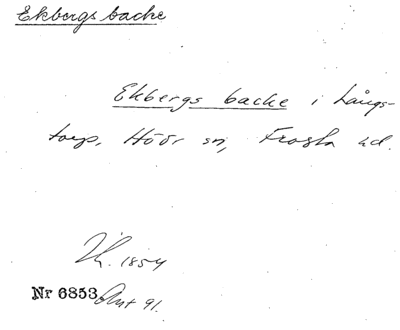 Ekbergs backe
Ekbergs backe i Långs-
torp, Höör sn, Frosta hd.
1854
Nr 6853 Ant 91.